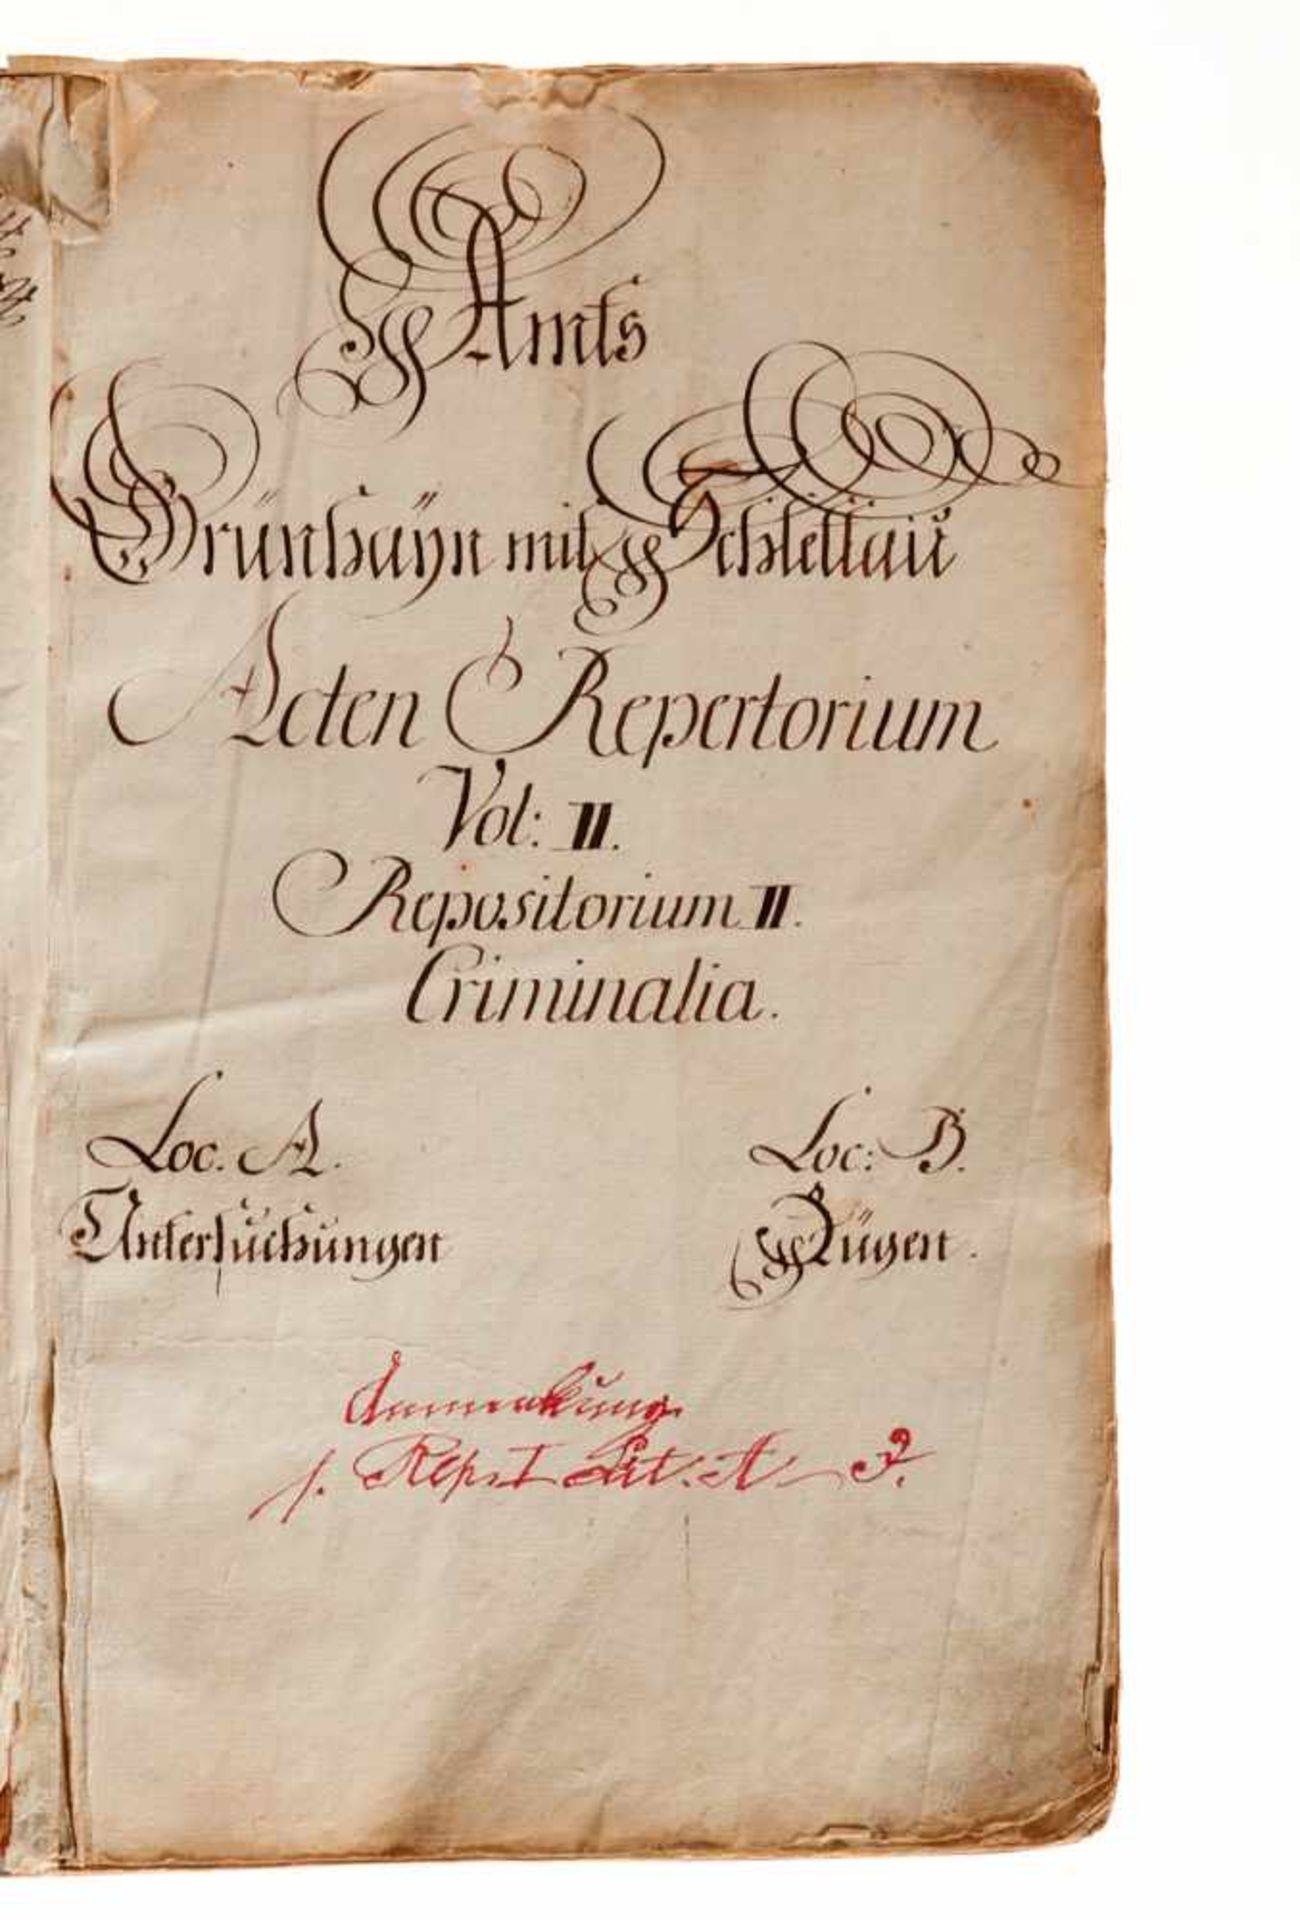 Amts
Grünhaÿn mit Schlettau
Acten Repertorium
Vol: II.
Repositorium II.
Criminalia.
Loc. A.
Untersuchungen
Loc: B.
Rügen.
Anmerkung
s. Rep. I Lit. A